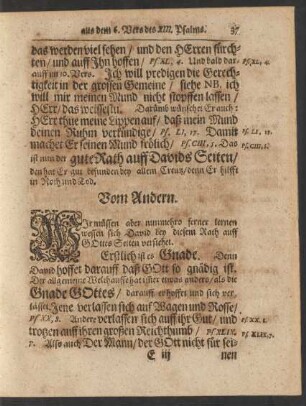 aus dem 6. Vers des XIII. Psalms. 37
das werden viel sehen / und den HErren fürch-
ten / und auff Jhn hoffen / Ps. XL, 4. Und bald dar- Ps. XL, 4.
auff im 10. Vers. Jch will predigen die Gerech-
tigkeit in der grossen Gemeine / siehe NB. ich
will mir meinen Mund nicht stopffen lassen /
HErr / das weissestu. Darumb wünschet Er auch:
HErr thue meine Lippen auf / daß mein Mund
deinen Ruhm verkündige / Ps. LI, 17. Damit Ps. LI, 17.
machet Er seinen Mund frölich / Ps. CIII, 5. Das Ps. CIII, 5.
ist nun der gute Rath auff Davids Seiten /
den hat Er gut befunden bey allem Creutz / denn Er hilfft
in Noth und Tod.
Vom Andern.
WJr müssen aber nunmehro ferner lernen
wessen sich David bey diesem Rath auff
GOttes Seiten versiehet.
Erstlich ist es Gnade. Denn
David hoffet darauff daß GOtt so gnädig ist.
Die Gnade GOttes / darauff er hoffet und sich ver-
lässet. Jene verlassen sich auff Wagen und Rosse /
Ps. XX, 8. Andere verlassen sich auff ihr Gut / und Ps. XX. 8.
trotzen auff ihren grossen Reichthumb / Ps. XLIX, Ps. XLIX. 7.
7. Also auch Der Mann / der GOtt nicht für sei-
E iij nen